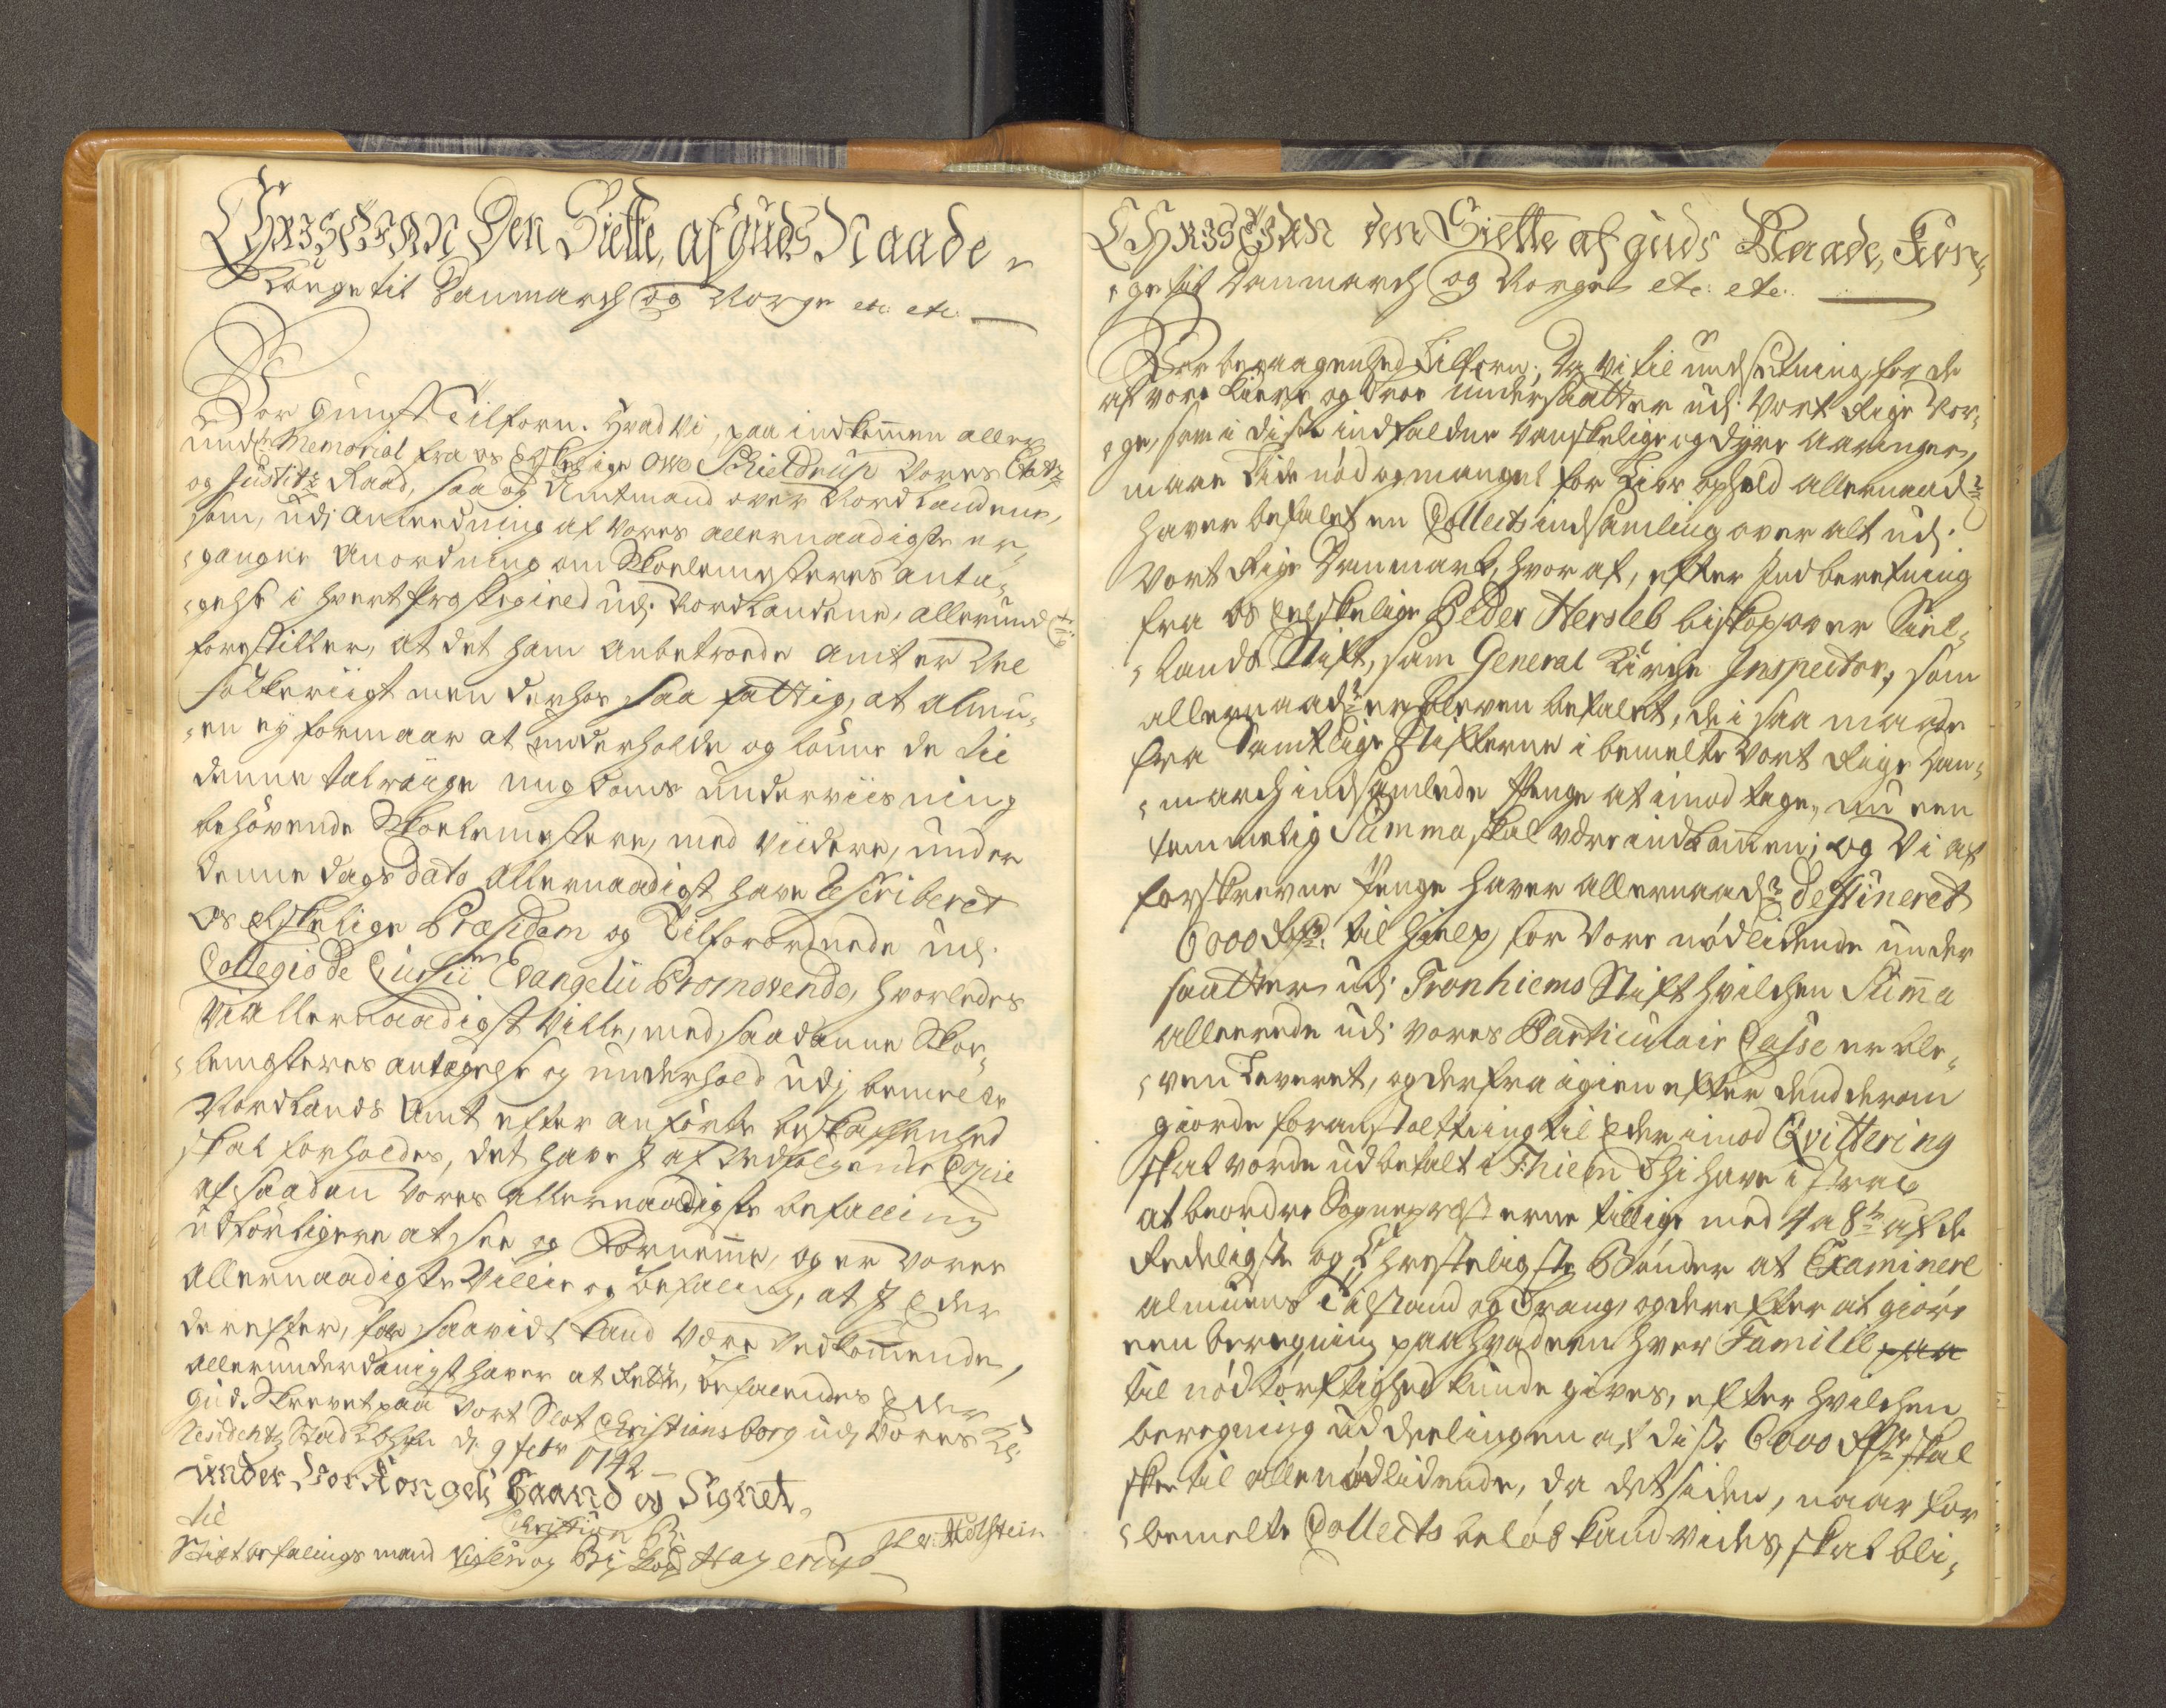 CHRISTIAN Den Siette, af Guds Naade
Konge til Danmarch og Norge etc: etc:
Vor Gunst Tilforn. Hvad Vi, paa indkommen aller
und: Memorial fra os Elskelige Owe Schieldrup Vores Etatz
og Justitz Raad, saa og Amtmand over Nordlandene,
som, udj Anleedning af Vores allernaadigste er„
„gangne Anordning om Skoelemesteres anta„
„gelse i hvert Præstegield udj Nordlandene, allerund:
forestiller, at det ham anbetroede Amt er vel
folkeriigt men derhos saa fattig, at Almu„
„en ej formaar at underholde og lønne de til
denne talriige ungdoms underviisning
behøvende Skoelemestere, med Viidere, under
denne Dags dato allernaadigst have rescriberet
Os Elskelige Præsidem og Tilforordnede udj
Collegio de Cursu Evangelii Promovendo, hvorledes
Vi allernaadigst Ville, med saadanne Skoe„
„lemesteres antagelse og underhold udj bemelte
Nordlands Amt efter anførte beskaffenhed
skal forholdes, det have I af Vedfølgende Copie
af saadan Vores allernaadigste befalling
udførligere at see og fornemme, og er Vores
allernaadigste Villie og befaling, at I Eder
derefter, for saavidt kand være Vedkommende,
allerunderdanigst haver at rette, befalendes Eder
Gud. Skrevet paa Vort Slot Christiansborg udj Vores Kl:
Residentz Stad Kbhfn d: 9 febr 1742
under Vor Kongel: Haand og Signet.
Christian R:
Til
J L v. Holstein
Stiftbefalings mand Nissen og Biskop Hagerup
CHRISTIAN den Siette af Guds Naade, Kon„
„ge til Danmarch og Norge etc: etc:
Vor bevaagenhed Tilforn; Da Vi til undsætning for de
af vore kiere og troe undersaatter udj Vort Rige Nor„
„ge, som i disse indfaldne vanskelige og dyre Aaringer,
maae lide nød og mangel for Livs ophold allernaad:
haver befalet en Collects indsamling over alt udj
Vort Rige Danmark, hvor af, efter Indberetning
fra os Elskelige Peder Hersleb biskop over Siel„
„lands Stift, som General Kirche Inspector, som
allernaad: er bleven befalet, de i saa maade
fra Samtlige Stifterne i bemelte Vort Rige Dan„
„march indsamlede Penge at imod tage, nu een
temmelig Summa skal være indkommen; og Vi af
forskrevne Penge haver allernaad: destineret
6000 Rdr: til hielp for Vore nødlidende under
saatter udj Tronhiems Stift hvilchen Summa
allereede udj Vores Particulair Casse er ble„
„ven leveret, og derfra igien efter dend derom
giorde foranstaltning til Eder imod Qvittering
skal vorde udbetalt i Thiem Thi have i strax
at beordre Sognepræsterne tillige med 4 a 8te af de
Redeligste og Christeligste Bønder at Examinere
almuens Tilstand og Trang, og derefter at giøre
een beregning paa hvad een hver Familie paa
til nødtørftighed kunde gives, efter hvilchen
beregning uddeelingen af disse 6000 Rdr skal
skee til alle nødlidende, da det siden, naar for
„bemelte Collects beløb kand vides, skal bli„